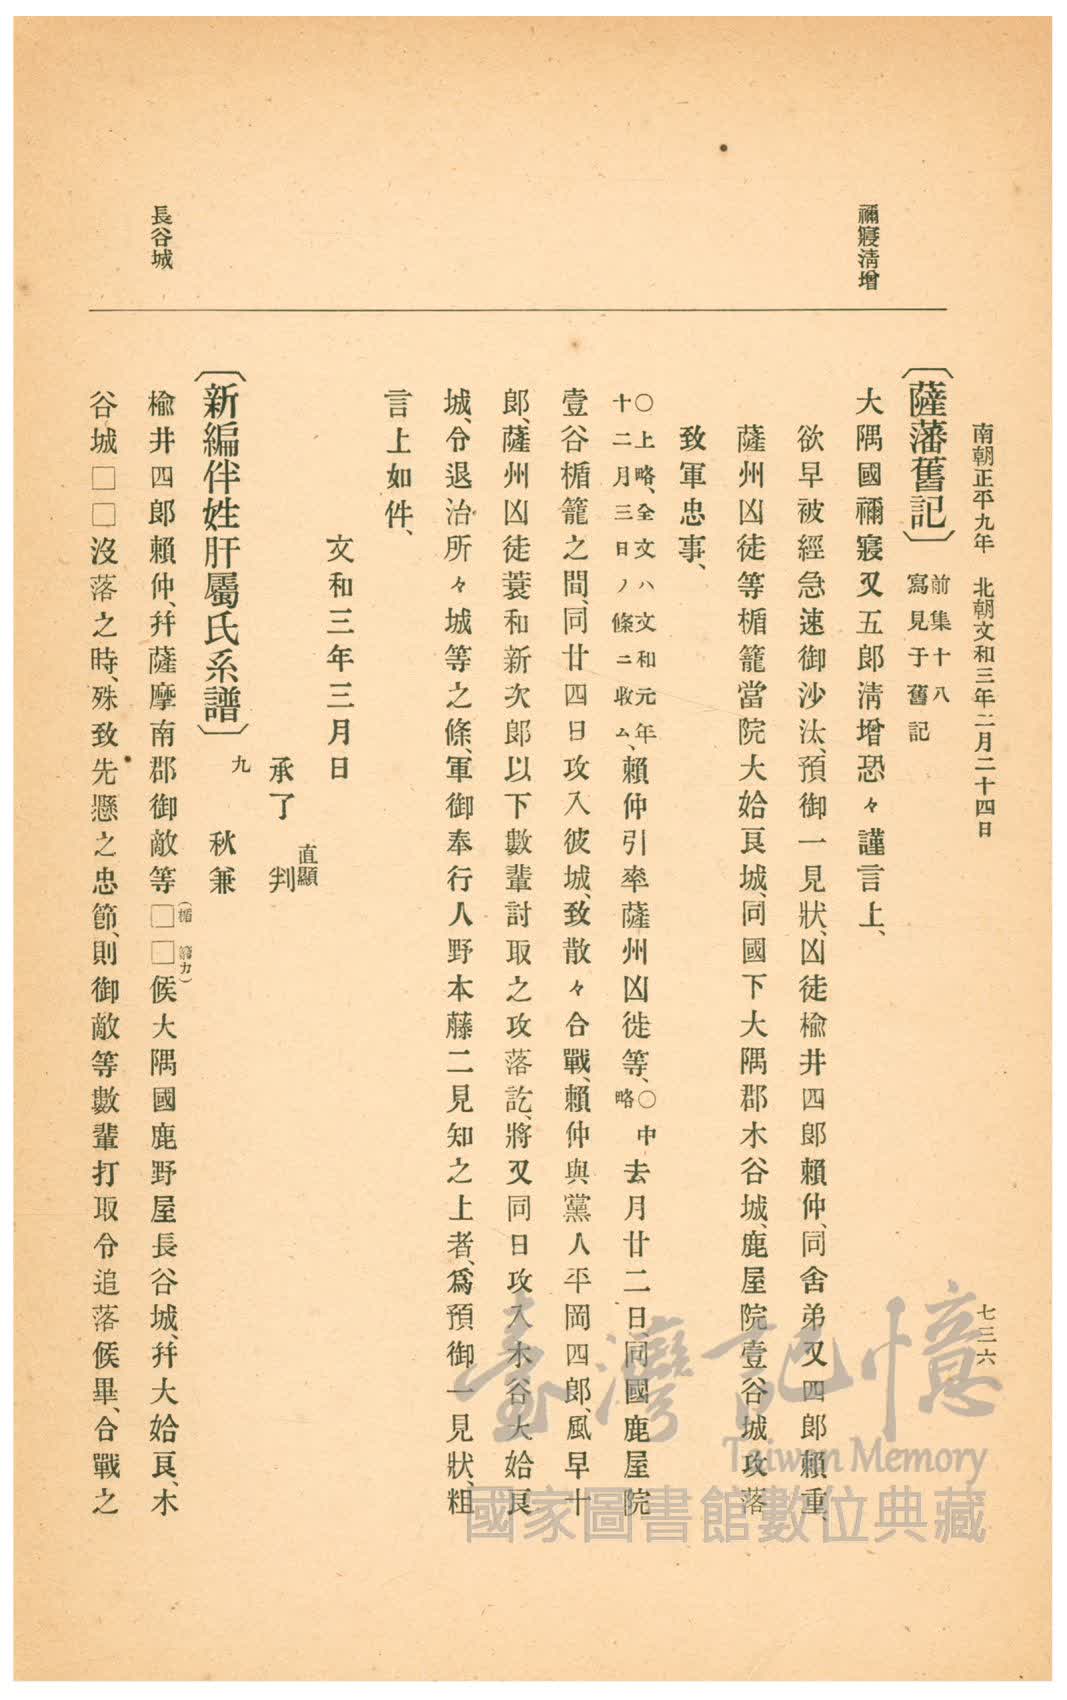 南朝正平九年　北朝文和三年二月二十四日
七三六
禰寢清增
長谷城
〔薩藩舊記〕前集十八
寫見于舊記
大隅國禰寢又五郎淸增恐々謹言上、
欲早被經急速御沙汰、預御一見狀、凶徒楡井四郎賴仲、同舍弟又四郎賴重、
薩州凶徒等楯籠當院大姶良城、同國下大隅郡木谷城、鹿屋院壹谷城攻落
致軍忠事、
〇上略、全文ハ文和元年
十二月三日ノ條ニ收ム、賴仲引率薩州凶徒等、〇中略去月廿二日、同國鹿屋院
壹谷楯籠之間、同廿四日攻入彼城、致散々合戰、賴仲與黨人平岡四郎、風早十
郎、薩州凶徒蓑和新次郎以下數輩討取之攻落訖、將又同日攻入木谷大姶良
城、令退治所々城等之條、軍御奉行人野本藤二見知之上者、爲預御一見狀、粗
言上如件、
文和三年三月日
承了　直顯
判
〔新編伴姓肝屬氏系譜〕九　秋兼
楡井四郎賴仲、幷薩摩南郡御敵等□□(楯籠カ)候大隅國鹿野屋長谷城、幷大姶良、木
谷城□□沒落之時、殊致先懸之忠節、則御敵等數輩打取令追落候畢、合戰之
臺灣記憶
Taiwan Memory
國家圖書館數位典藏